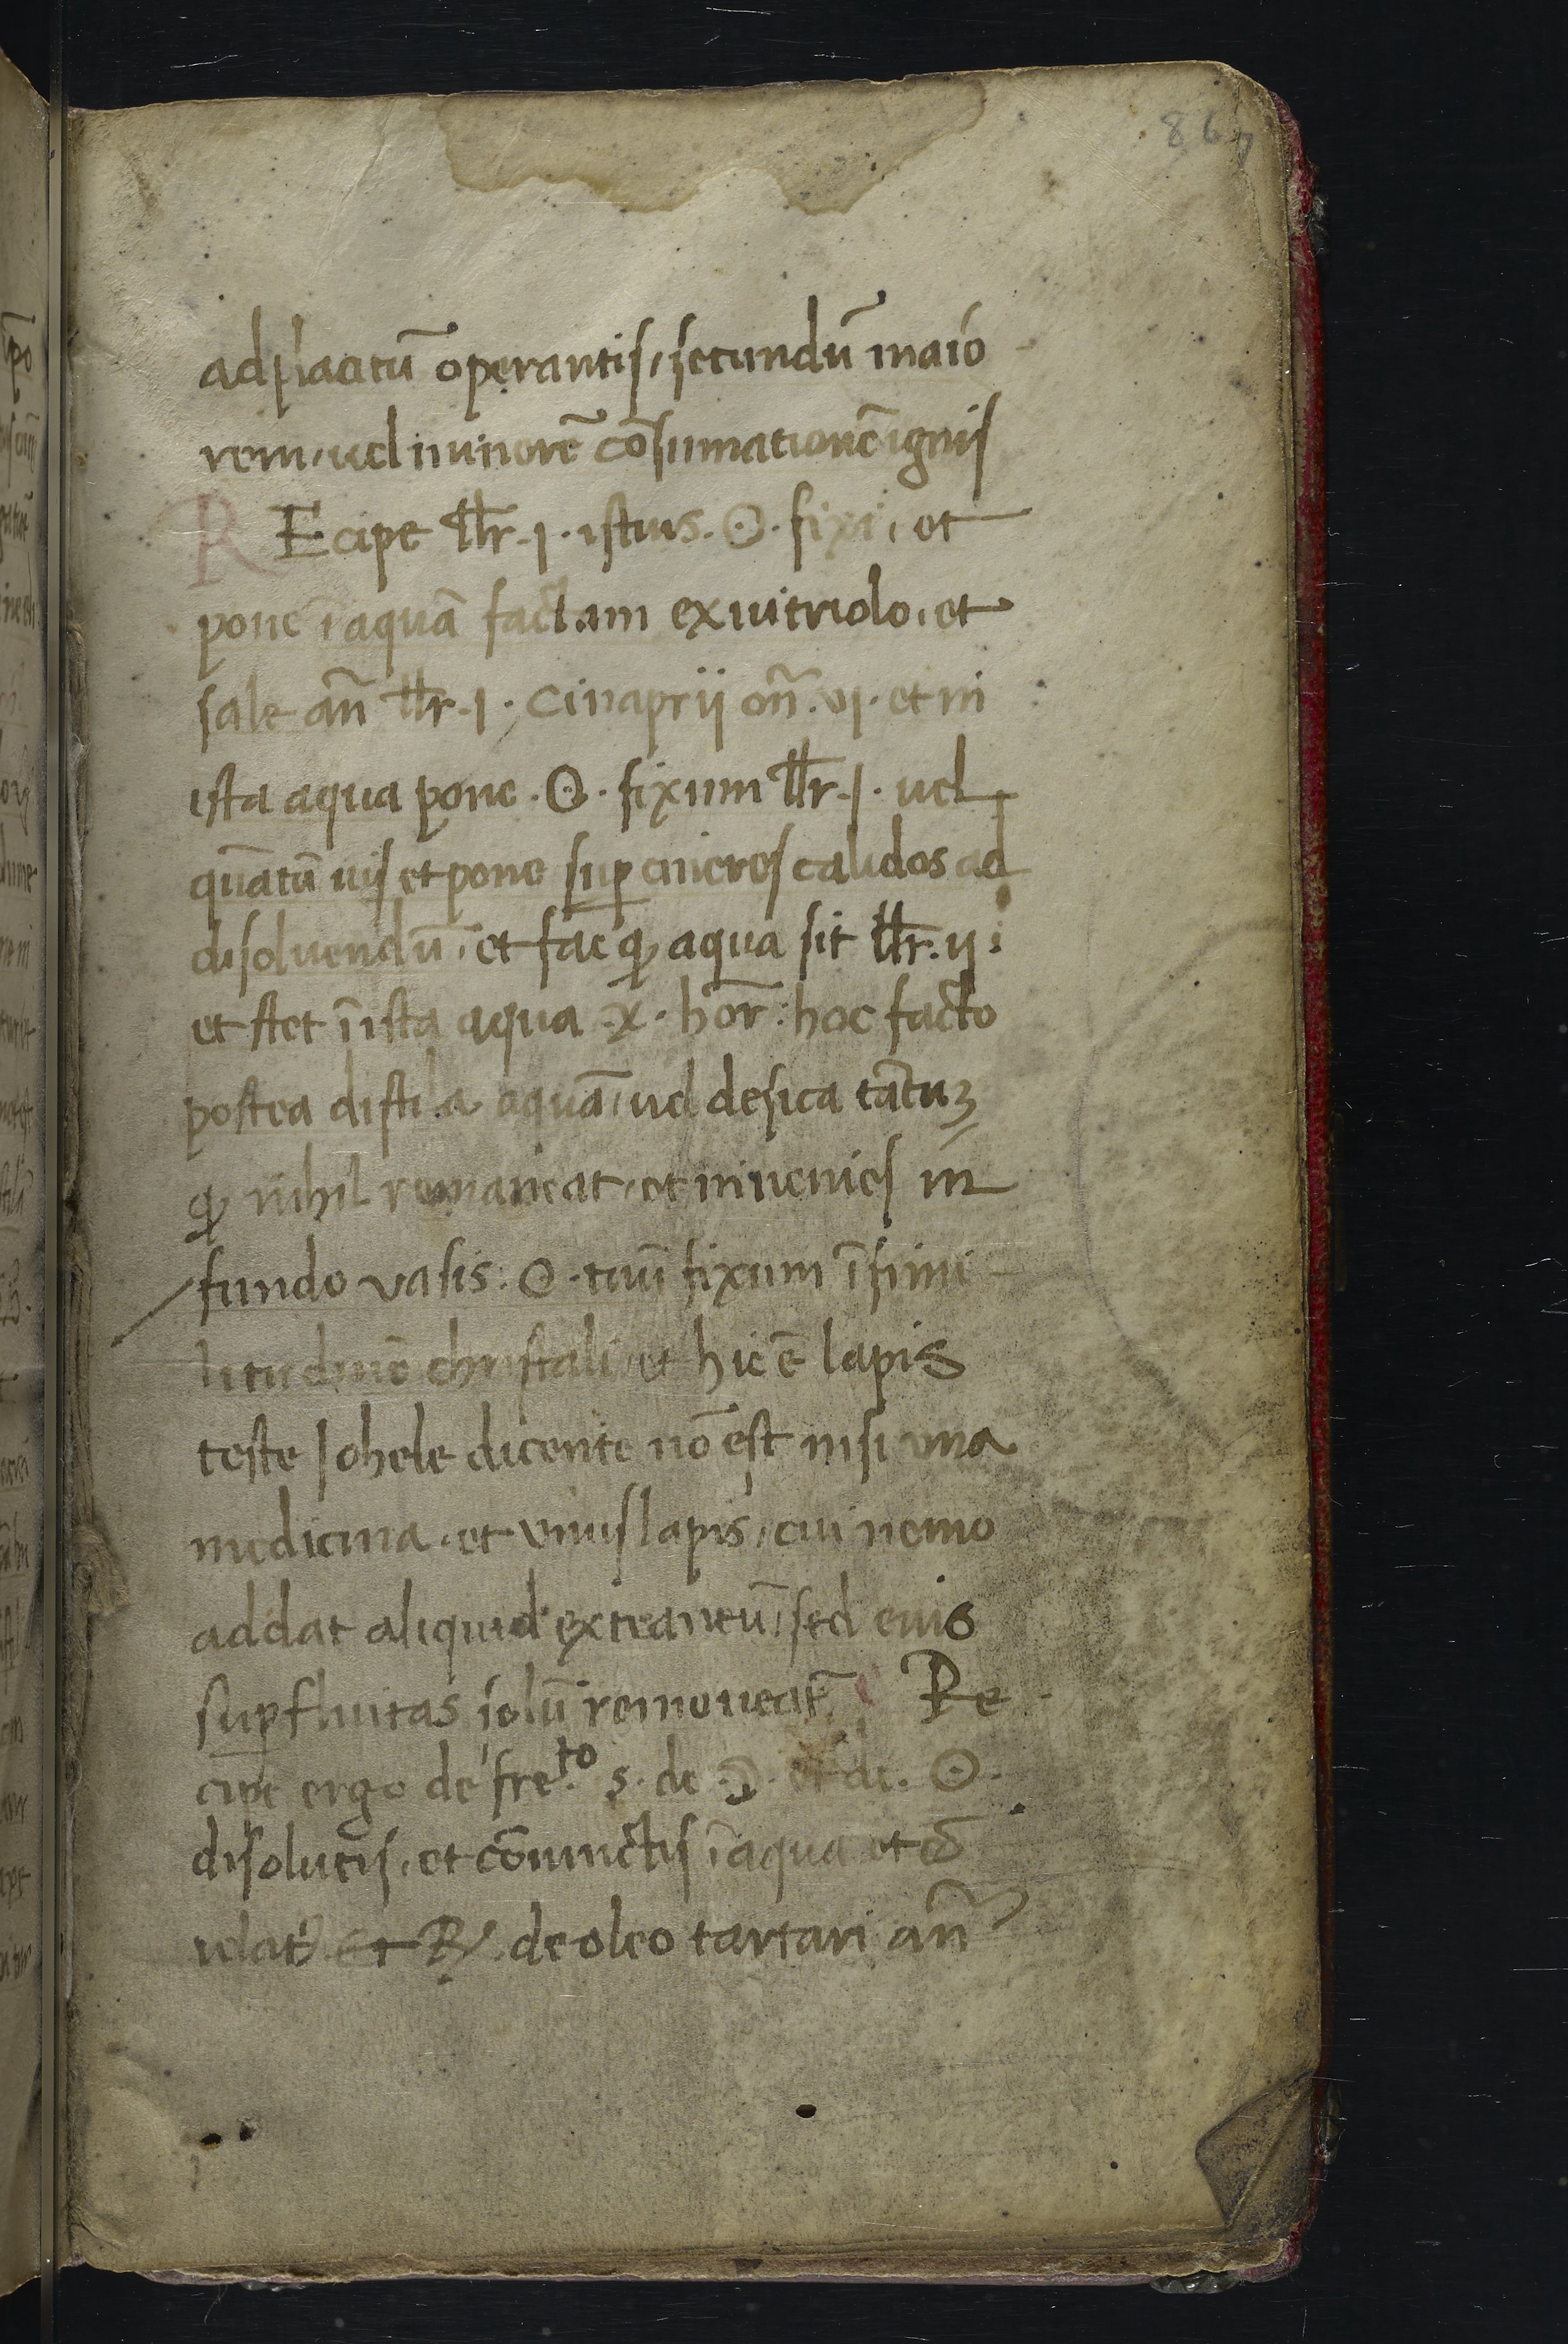 867
adplacitū operantis, secundū maio
rem, uel minorē cōsumationē ignis
R Ecipe llr. j. istius. ☉. fixi, et
pone ī aquā factam ex uitriolo, et
sale an̄ llr. j. Cinaprij on̄. vj. et in
ista aqua pone. ☉. fixum llr. j. uel
quātū uis et pone suꝑ cineres calidos ad
disoluendū, et fac ꝙ aqua sit llr. ij.
et stet ī ista aqua .x. hor̄: hoc facto
postea distila aquā, uel desica tātuꝫ
ꝙ nihil remaneat, et inuenies in
fundo vasis: ☉. tuū fixum ī simi
litudinē christali, et hic ē lapis
teste Johele dicente nō est nisi vna
medicina, et vnus lapis, cui nemo
addat aliquid extraneū, sed eius
suꝑfluitas solū remoueat᷑ Re
cipe ergo de fre.to s. de ☽. et de. ☉.
disolutis, et cōiunctis ī aqua et cō
Et ℞. de oleo tartari an̄